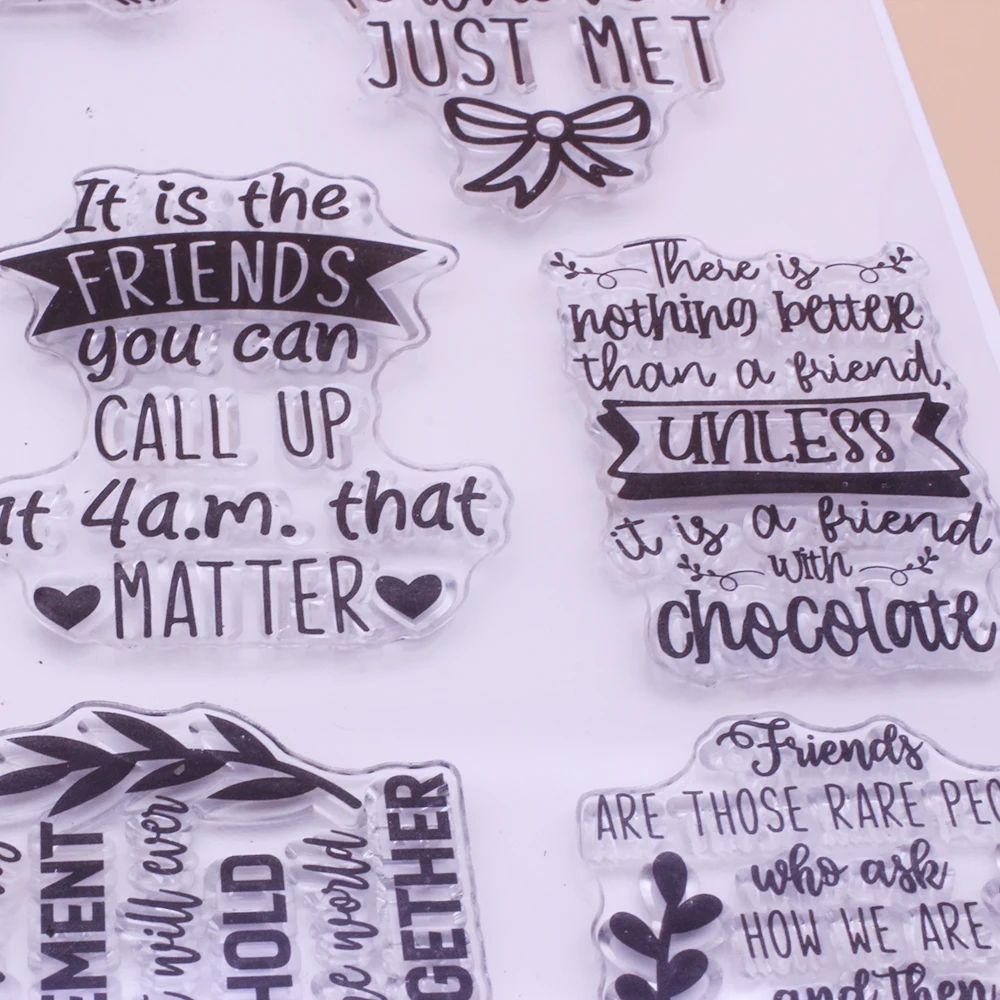 JUST MET
It is the
FRIENDS
you can
CALL UP
at 4a.m. that
MATTER
There is
nothing better
than a friend,
UNLESS
it is a friend
with
chocolate
will ever
HOLD
world
Friends
ARE THOSE RARE
who ask
HOW WE ARE
and then